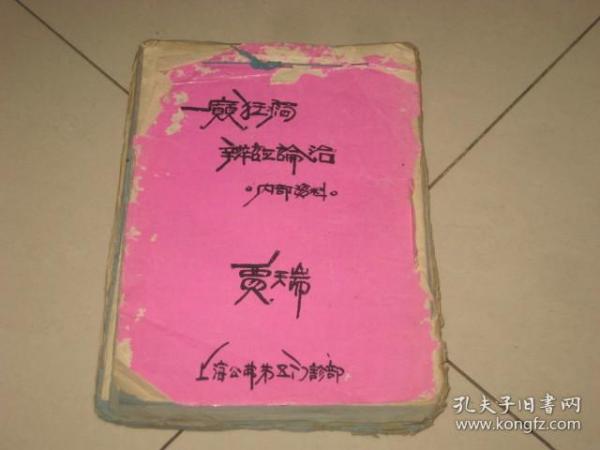 癫狂痫
辨証論治
。内部資料。
贾天瑞
上海公费第五门診部
孔夫子旧書网
www.kongfz.com